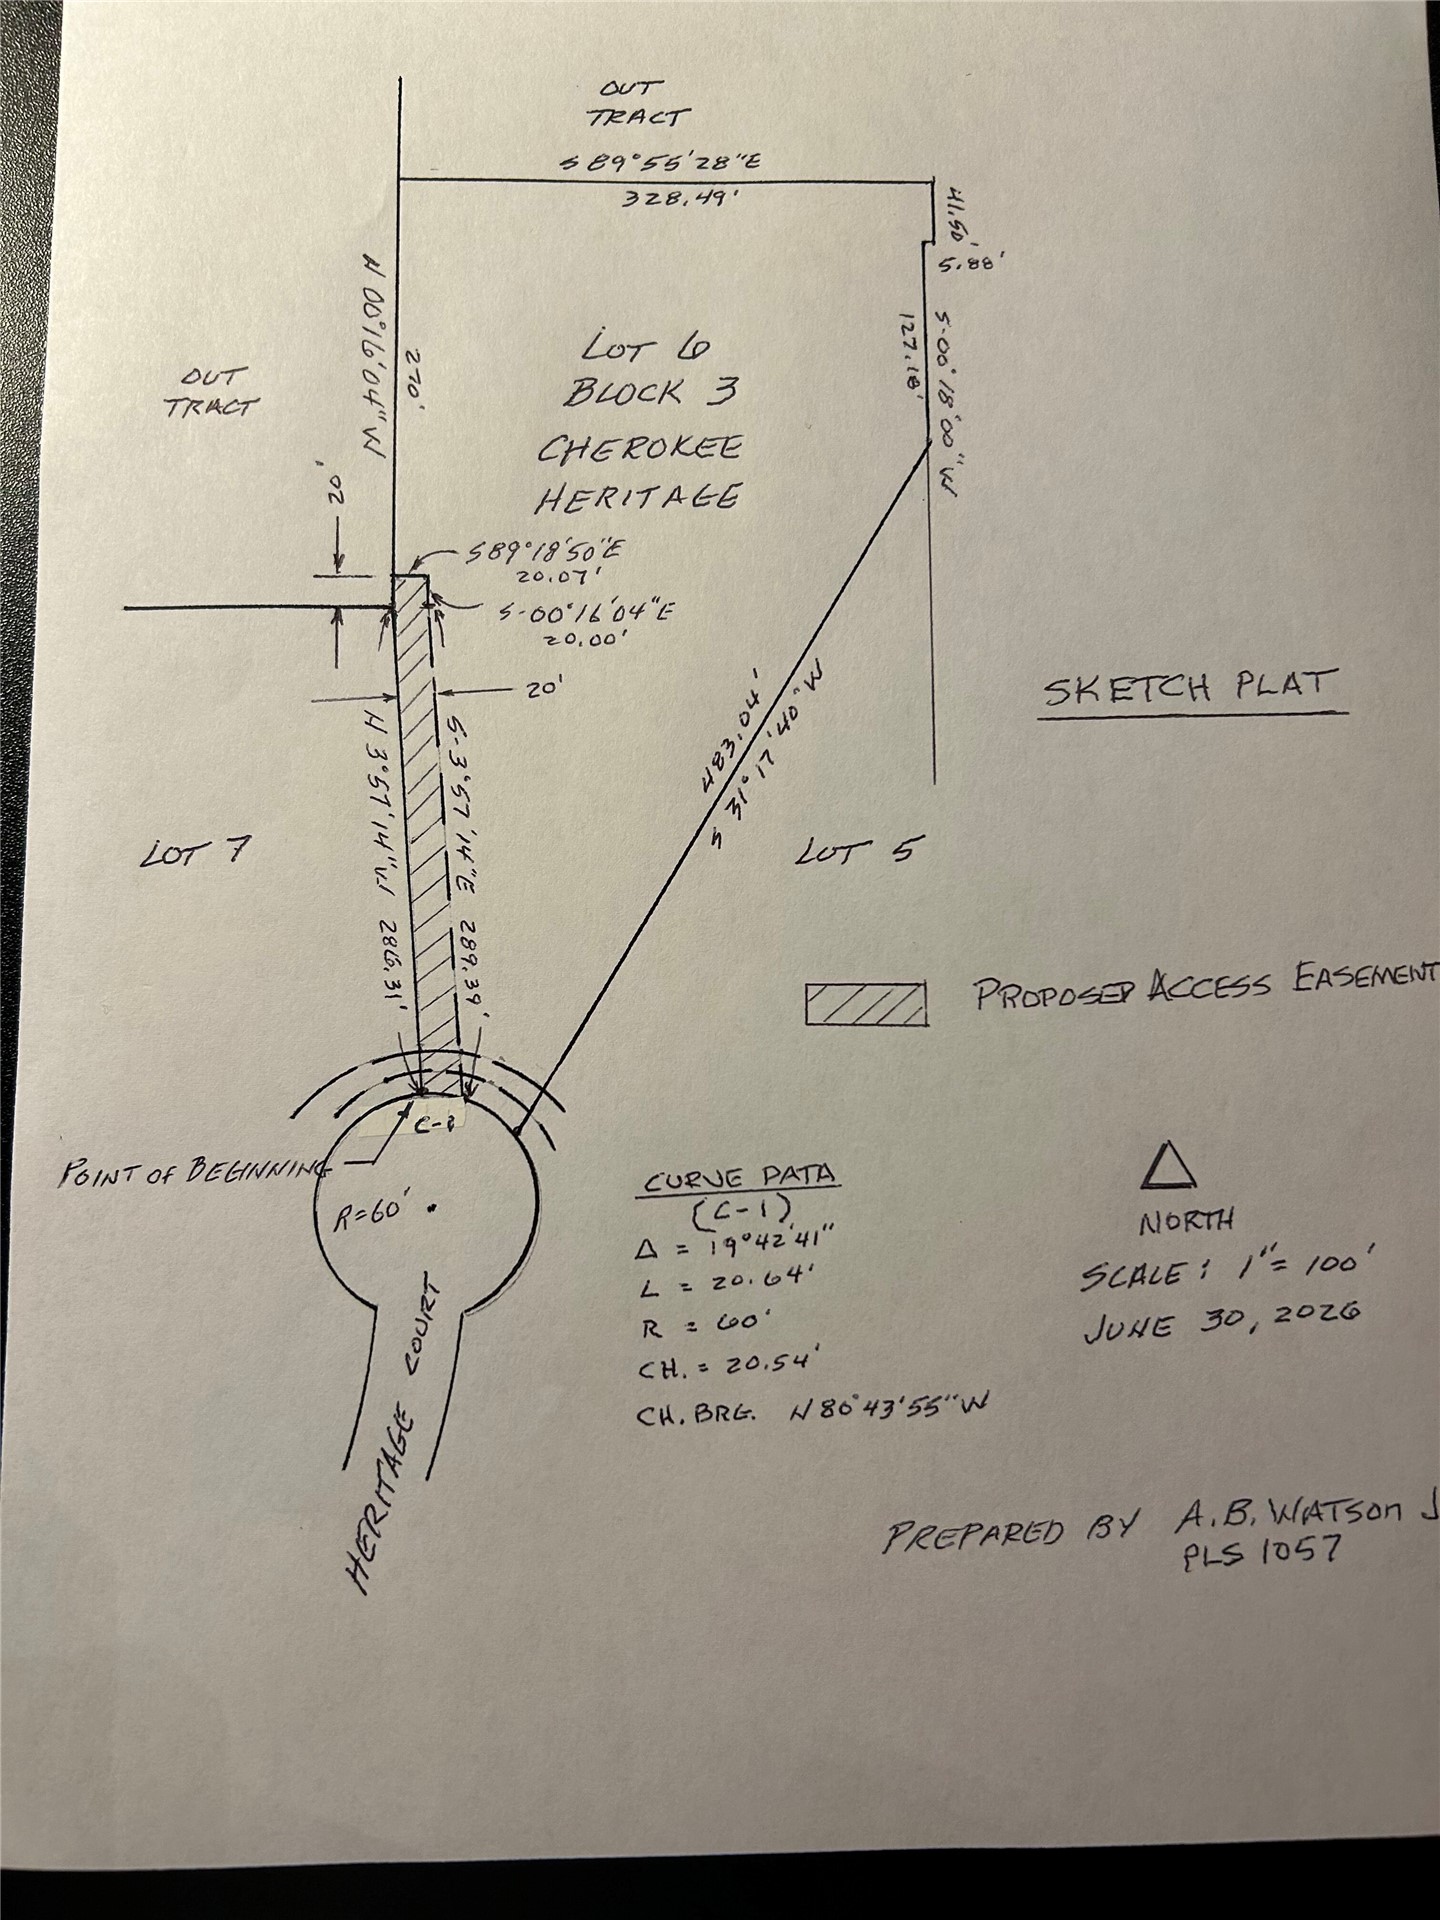 OUT
TRACT
S 89°55'28"E
328.49'
41.50'
5.88'
N 00°16'04" W
270'
S-00°18'00" W
127.18'
LOT 6
BLOCK 3
CHEROKEE
HERITAGE
OUT
TRACT
20'
S89°18'50"E
20.07'
S-00°16'04"E
20.00'
20'
N 3°57'14"W 286.31'
S-3°57'14"E 289.39'
483.04'
S 31°17'40" W
SKETCH PLAT
LOT 7
LOT 5
PROPOSED ACCESS EASEMENT
C-1
POINT OF BEGINNING
R=60'
HERITAGE COURT
CURVE DATA
(C-1)
Δ = 19°42'41"
L = 20.64'
R = 60'
CH. = 20.54'
CH. BRG. N 80°43'55" W
NORTH
SCALE: 1"= 100'
JUNE 30, 2026
PREPARED BY A.B. WATSON J
PLS 1057